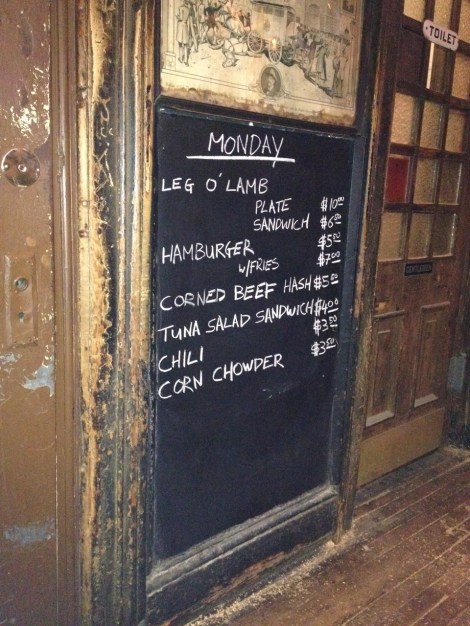 TOILET
MONDAY
LEG O'LAMB
PLATE $10.00
SANDWICH $6.50
HAMBURGER $5.50
W/FRIES $7.00
CORNED BEEF HASH $5.50
TUNA SALAD SANDWICH $4.00
CHILI $3.50
CORN CHOWDER $3.50